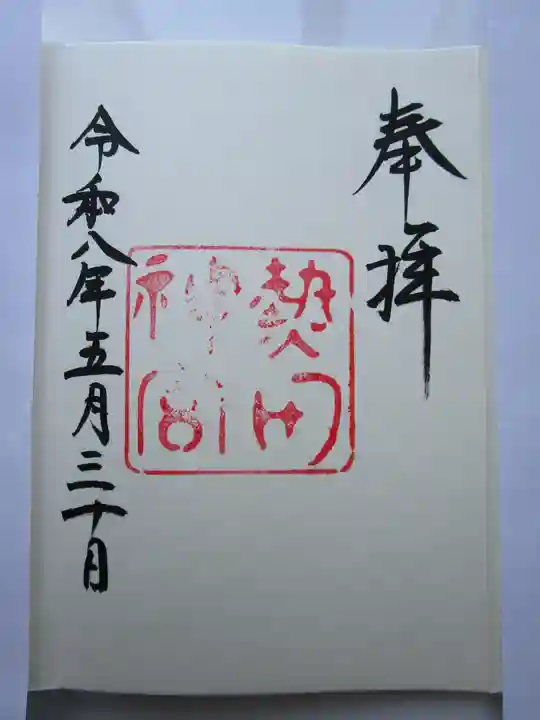 奉拝
熱田
神宮
令和八年五月三十日